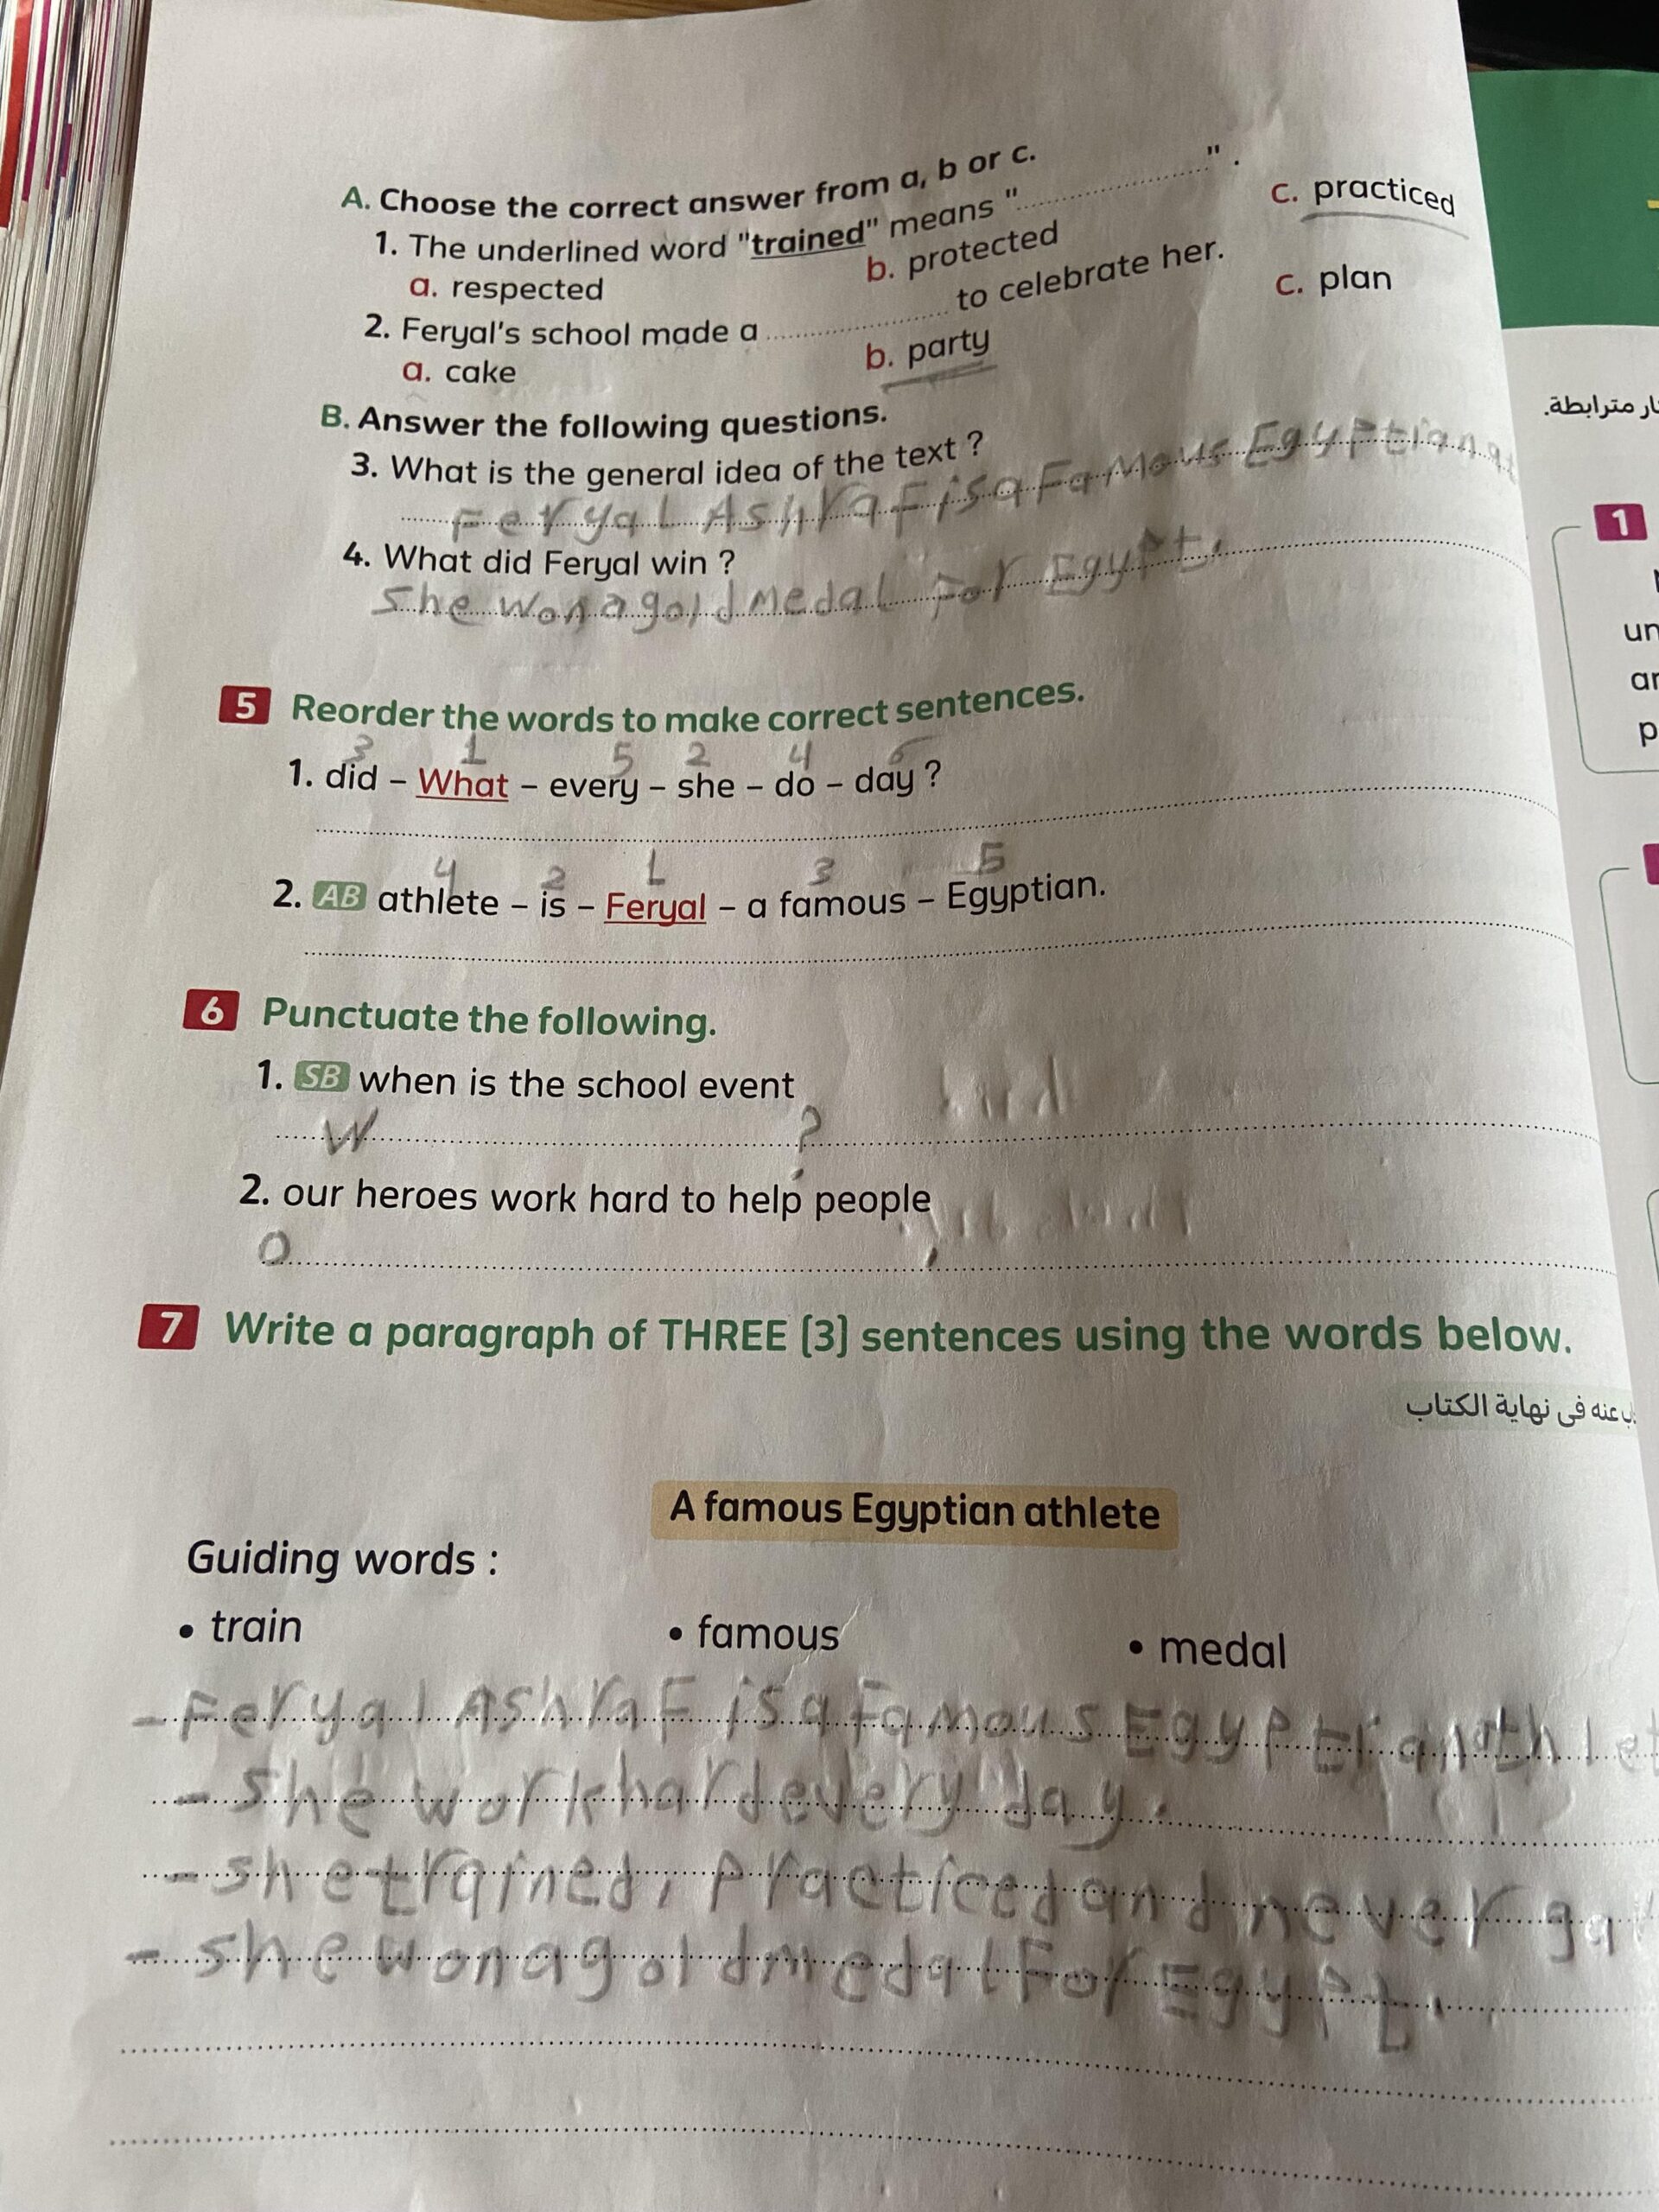 A. Choose the correct answer from a, b or c.
1. The underlined word "trained" means "..............................".
a. respected b. protected c. practiced
2. Feryal's school made a .............................. to celebrate her.
a. cake b. party c. plan
B. Answer the following questions.
3. What is the general idea of the text ?
Feryal AshraF is a FaMous Egyptian
4. What did Feryal win ?
She won a gold Medal For Egypt.
5 Reorder the words to make correct sentences.
3 1 5 2 4 6
1. did – What – every – she – do – day ?
4 2 1 3 5
2. AB athlete – is – Feryal – a famous – Egyptian.
6 Punctuate the following.
1. SB when is the school event
W ?
2. our heroes work hard to help people
O .
7 Write a paragraph of THREE (3) sentences using the words below.
عنه فى نهاية الكتاب
A famous Egyptian athlete
Guiding words :
• train • famous • medal
- Feryal AshraF is a Famous Egyptian athlet
- She work hard every day.
- She trained, practiced and never
- She won a gold medal For Egypt.
مترابطة.
1
un
ar
p